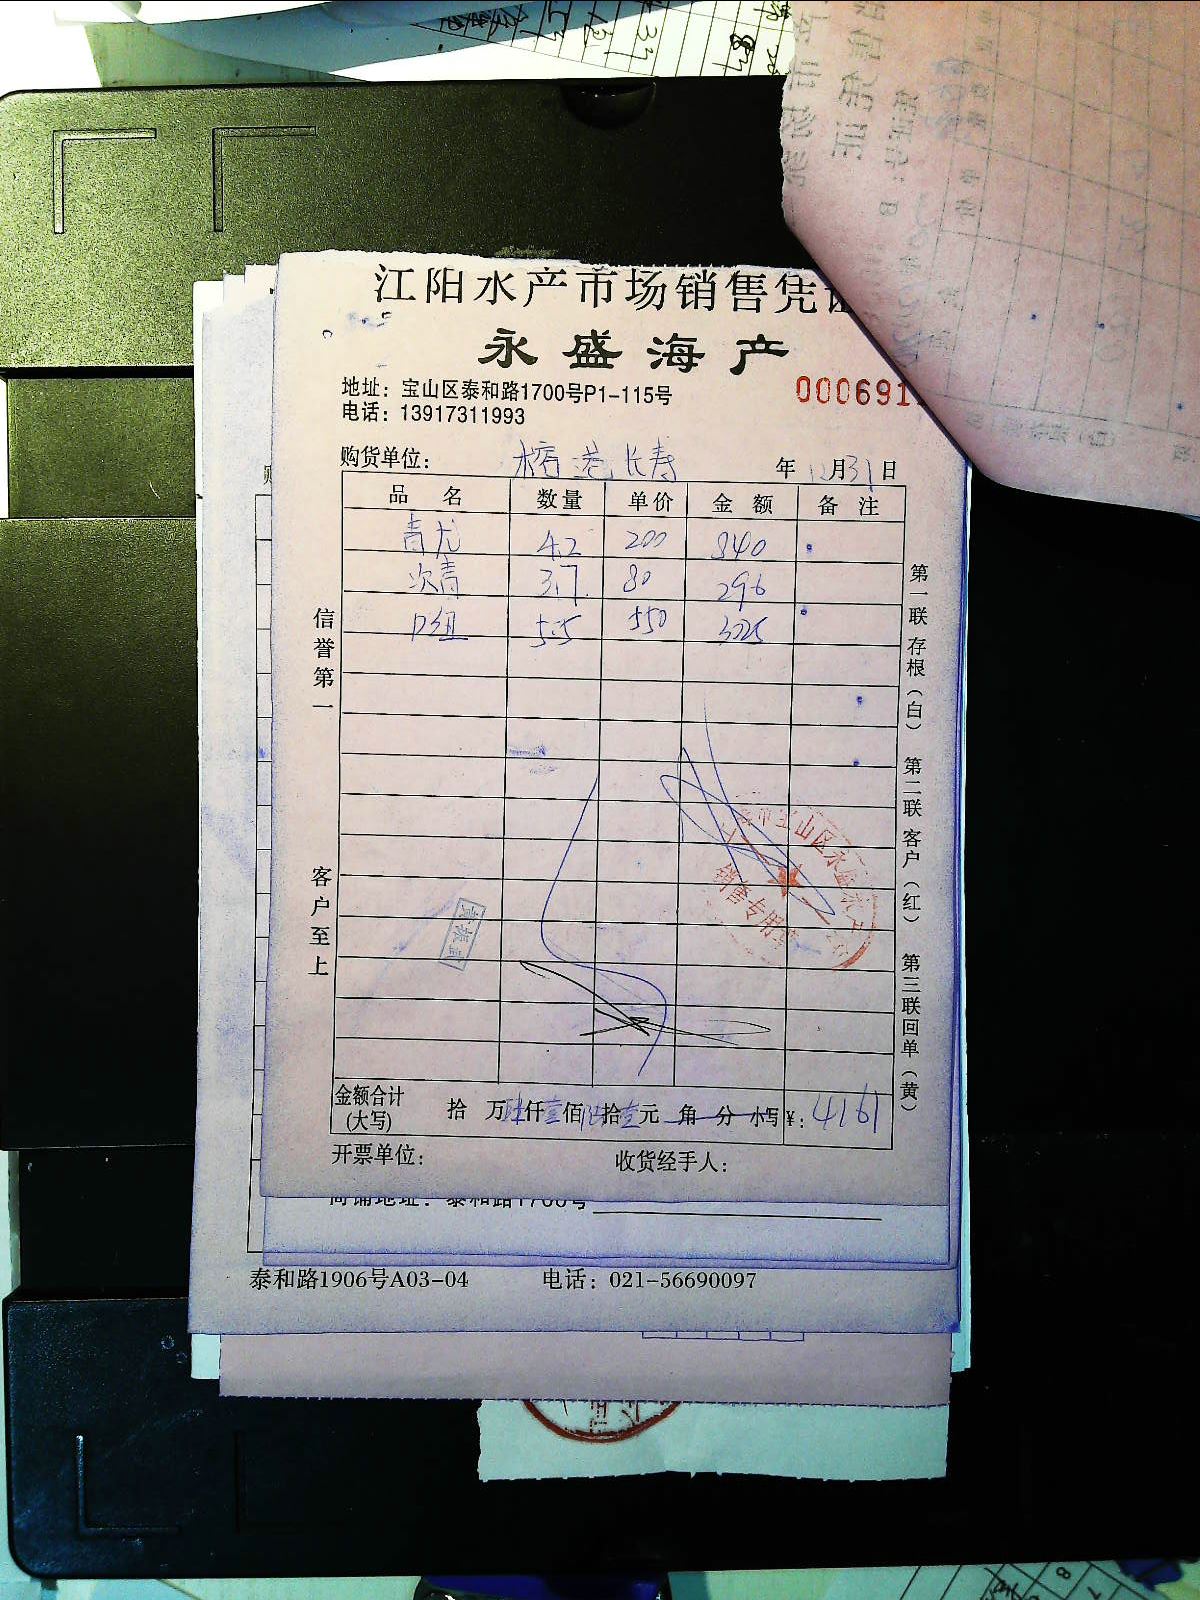 江阳水产市场销售凭
永盛海产
地址：宝山区泰和路1700号P1-115号
000691
电话：13917311993
购货单位： 榕港长寿 年12月31日
品 名 数量 单价 金 额 备 注
青龙 4.2 200 840
次青 3.7 80 296
5.5 550 3025
信誉第一
客户至上
第一联存根（白） 第二联客户（红） 第三联回单（黄）
销售专用章
金额合计
(大写) 拾 万肆仟壹佰陆拾壹元 角 分 小写¥：4161
开票单位： 收货经手人：
商铺地址：泰和路1700号
泰和路1906号A03-04 电话：021-56690097